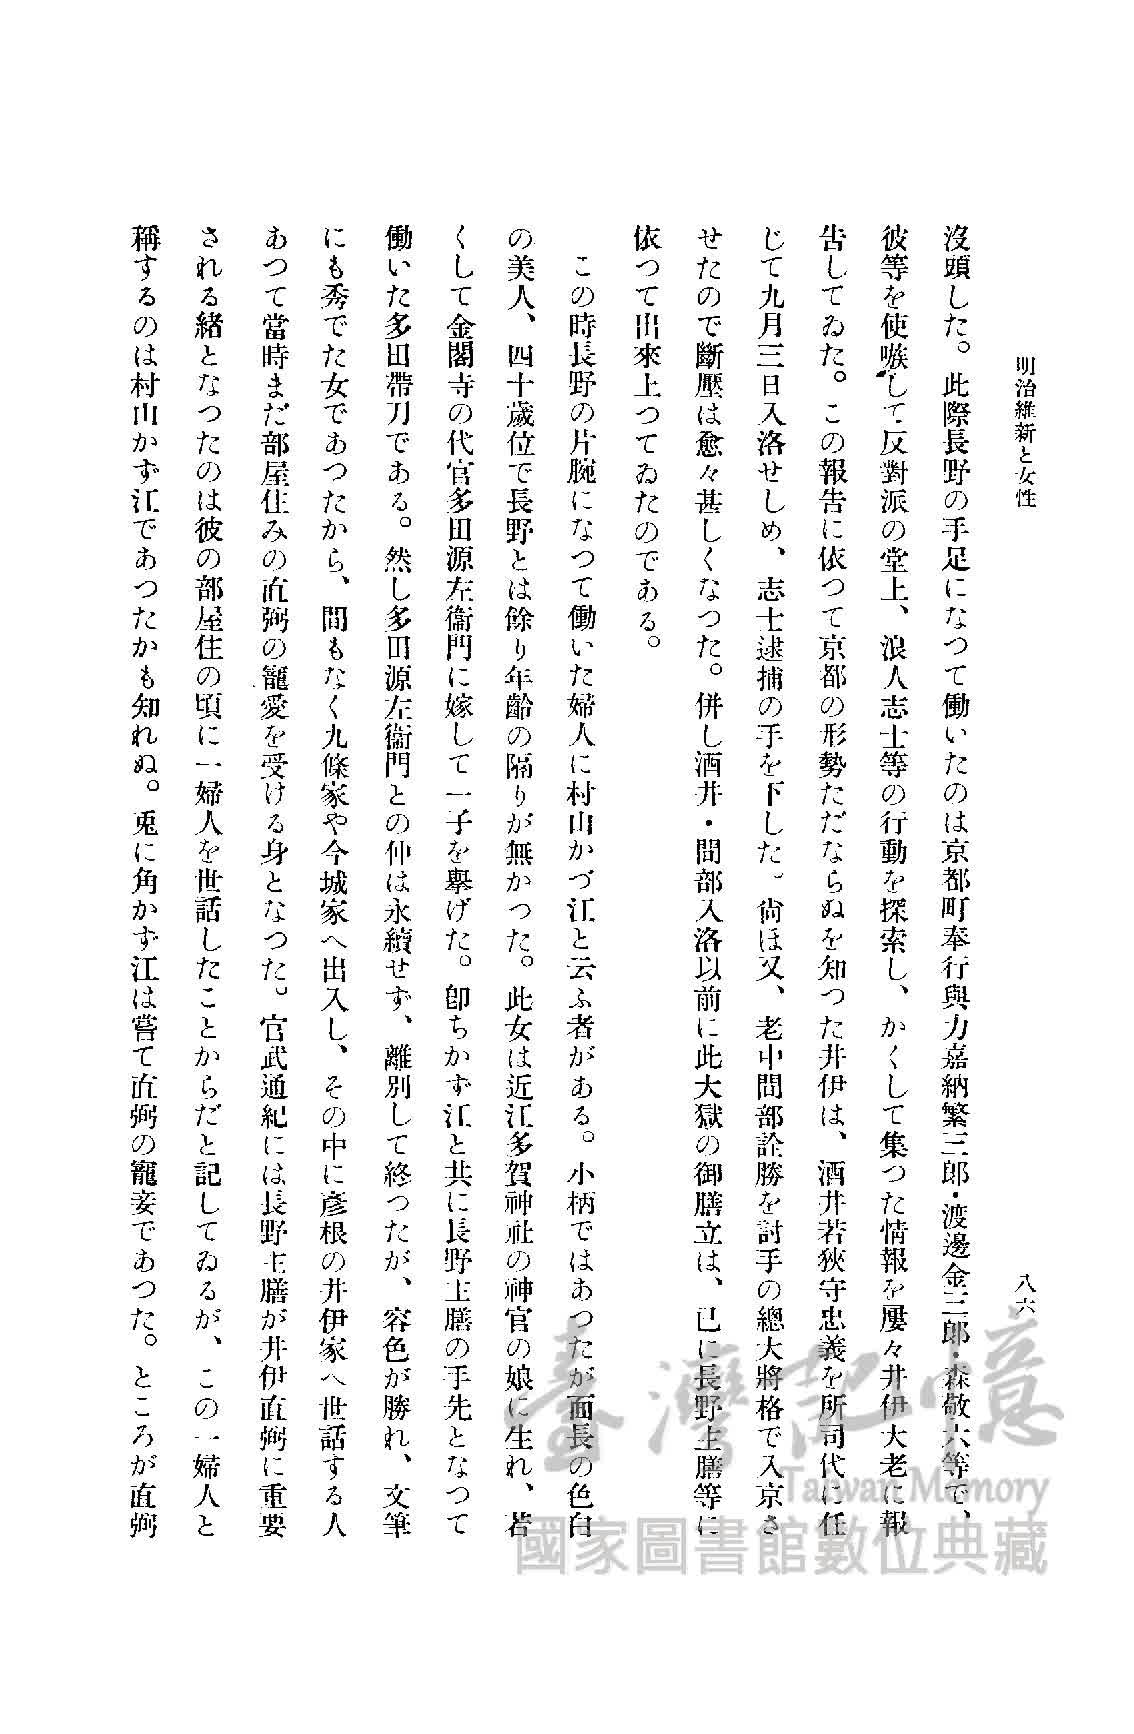 明治維新と女性
八六
沒頭した。此際長野の手足になつて働いたのは京都町奉行與力嘉納繁三郎・渡邊金三郎・森敬六等で、
彼等を使嗾して反對派の堂上、浪人志士等の行動を探索し、かくして集つた情報を屢々井伊大老に報
告してゐた。この報告に依つて京都の形勢ただならぬを知つた井伊は、酒井若狹守忠義を所司代に任
じて九月三日入洛せしめ、志士逮捕の手を下した。尙ほ又、老中間部詮勝を討手の總大將格で入京さ
せたので斷壓は愈々甚しくなつた。併し酒井・間部入洛以前に此大獄の御膳立は、已に長野主膳等に
依つて出來上つてゐたのである。
この時長野の片腕になつて働いた婦人に村山かづ江と云ふ者がある。小柄ではあつたが面長の色白
の美人、四十歲位で長野とは餘り年齡の隔りが無かつた。此女は近江多賀神社の神官の娘に生れ、若
くして金閣寺の代官多田源左衞門に嫁して一子を擧げた。卽ちかず江と共に長野主膳の手先となつて
働いた多田帶刀である。然し多田源左衞門との仲は永續せず、離別して終つたが、容色が勝れ、文筆
にも秀でた女であつたから、間もなく九條家や今城家へ出入し、その中に彥根の井伊家へ世話する人
あつて當時まだ部屋住みの直弼の寵愛を受ける身となつた。官武通紀には長野主膳が井伊直弼に重要
される緒となつたのは彼の部屋住の頃に一婦人を世話したことからだと記してゐるが、この一婦人と
稱するのは村山かず江であつたかも知れぬ。兎に角かず江は嘗て直弼の寵妾であつた。ところが直弼
臺灣記憶
Taiwan Memory
國家圖書館數位典藏